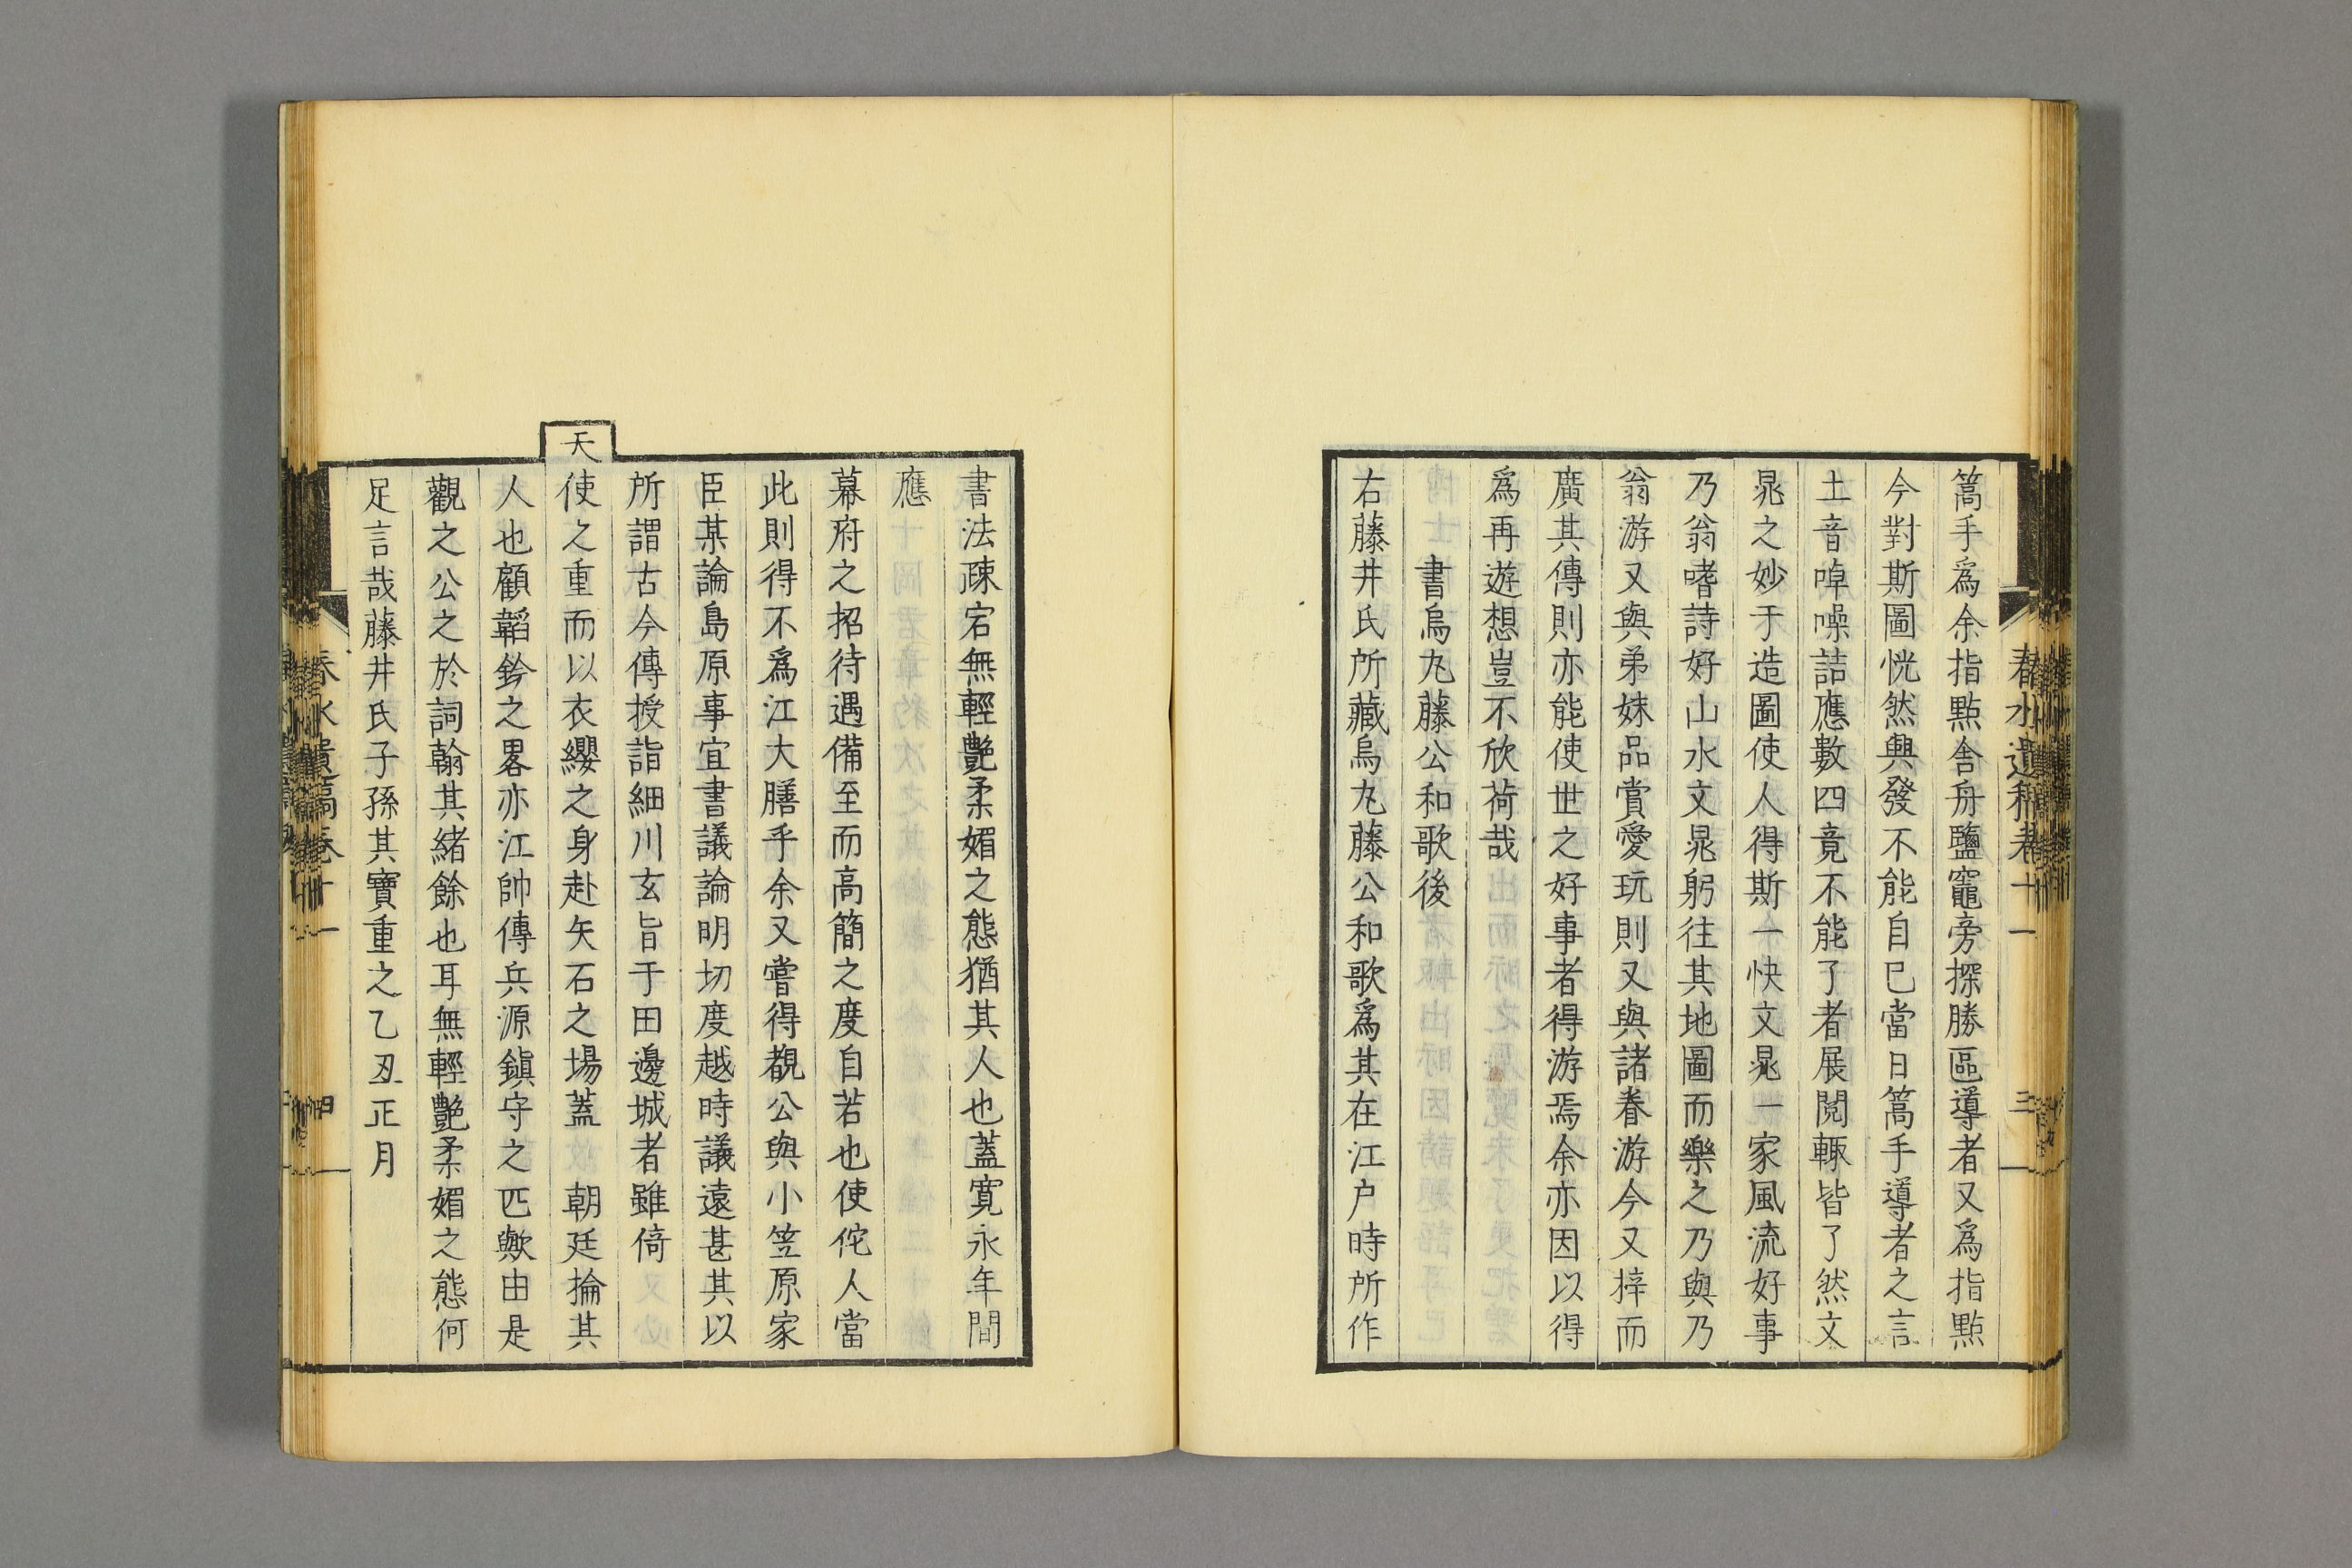 春水遺稿卷十一
三
篙手爲余指點舎舟鹽竈旁探勝區導者又爲指點
今對斯圖恍然興發不能自已當日篙手導者之言
土音啅噪詰應數四竟不能了者展閲輙皆了然文
晁之妙于造圖使人得斯一快文晁一家風流好事
乃翁嗜詩好山水文晁躬往其地圖而樂之乃與乃
翁游又與弟妹品賞愛玩則又與諸眷游今又梓而
廣其傳則亦能使世之好事者得游焉余亦因以得
爲再遊想豈不欣荷哉
書烏丸藤公和歌後
右藤井氏所藏烏丸藤公和歌爲其在江戸時所作
書法疎宕無輕艶柔媚之態猶其人也蓋寛永年間
應
幕府之招待遇備至而高簡之度自若也使佗人當
此則得不爲江大膳乎余又嘗得覩公與小笠原家
臣某論島原事宜書議論明切度越時議遠甚其以
所謂古今傳授詣細川玄旨于田邊城者雖倚
天
使之重而以衣纓之身赴矢石之場蓋　朝廷掄其
人也顧韜鈐之畧亦江帥傳兵源鎭守之匹歟由是
觀之公之於詞翰其緒餘也耳無輕艶柔媚之態何
足言哉藤井氏子孫其寶重之乙丑正月
春水遺稿卷十一